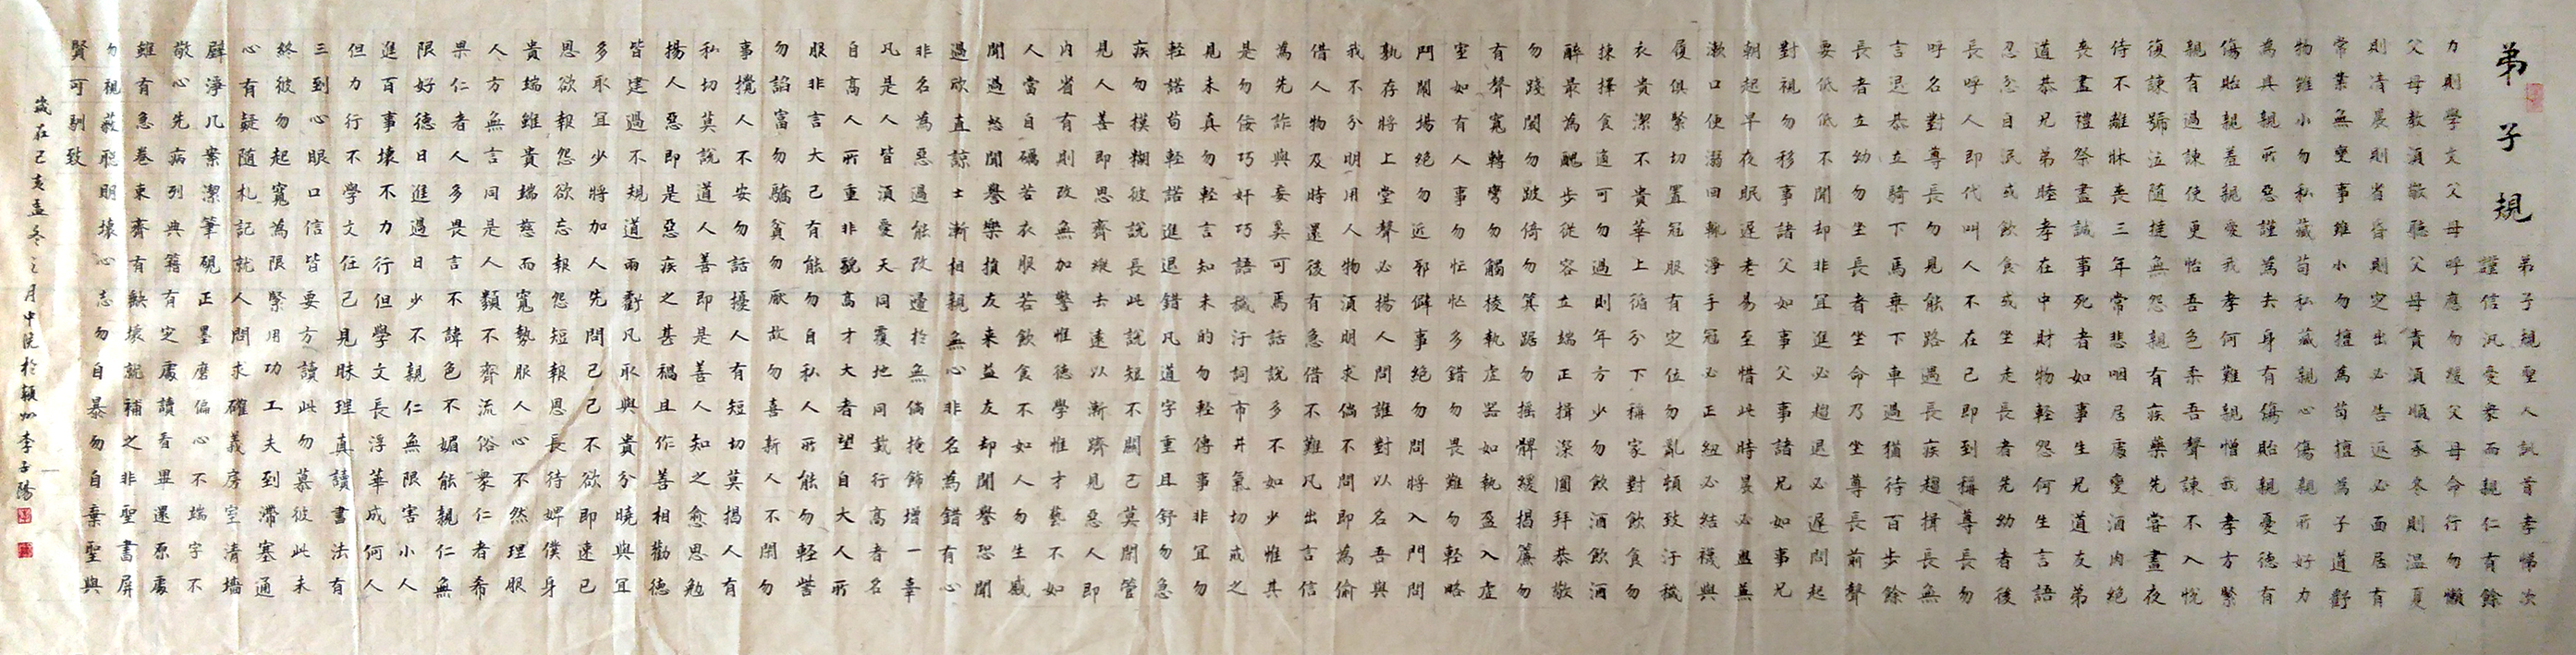 弟子規
弟子規聖人訓首孝悌次
謹信汎愛衆而親仁有餘
力則學文父母呼應勿緩父母命行勿懶
父母教須敬聽父母責須順承冬則溫夏
則凊晨則省昏則定出必告返必面居有
常業無變事雖小勿擅為苟擅為子道虧
物雖小勿私藏苟私藏親心傷親所好力
為具親所惡謹為去身有傷貽親憂德有
傷貽親羞親愛我孝何難親憎我孝方賢
親有過諫使更怡吾色柔吾聲諫不入悅
復諫號泣隨撻無怨親有疾藥先嘗晝夜
侍不離牀喪三年常悲咽居處變酒肉絕
喪盡禮祭盡誠事死者如事生兄道友弟
道恭兄弟睦孝在中財物輕怨何生言語
忍忿自泯或飲食或坐走長者先幼者後
長呼人即代叫人不在己即到稱尊長勿
呼名對尊長勿見能路遇長疾趨揖長無
言退恭立騎下馬乘下車過猶待百步餘
長者立幼勿坐長者坐命乃坐尊長前聲
要低低不聞却非宜進必趨退必遲問起
對視勿移事諸父如事父事諸兄如事兄
朝起早夜眠遲老易至惜此時晨必盥兼
漱口便溺回輒淨手冠必正紐必結襪與
履俱緊切置冠服有定位勿亂頓致汙穢
衣貴潔不貴華上循分下稱家對飲食勿
揀擇食適可勿過則年方少勿飲酒飲酒
醉最為醜步從容立端正揖深圓拜恭敬
勿踐閾勿跛倚勿箕踞勿搖髀緩揭簾勿
有聲寬轉彎勿觸棱執虛器如執盈入虛
室如有人事勿忙忙多錯勿畏難勿輕略
鬥鬧場絕勿近邪僻事絕勿問將入門問
孰存將上堂聲必揚人問誰對以名吾與
我不分明用人物須明求倘不問即為偷
借人物及時還後有急借不難凡出言信
為先詐與妄奚可焉話說多不如少惟其
是勿佞巧奸巧語穢汙詞市井氣切戒之
見未真勿輕言知未的勿輕傳事非宜勿
輕諾苟輕諾進退錯凡道字重且舒勿急
疾勿模糊彼說長此說短不關己莫閒管
見人善即思齊縱去遠以漸躋見人惡即
內省有則改無加警惟德學惟才藝不如
人當自礪若衣服若飲食不如人勿生慼
聞過怒聞譽樂損友來益友却聞譽恐聞
過欣直諒士漸相親無心非名為錯有心
非名為惡過能改還於無倘掩飾增一辜
凡是人皆須愛天同覆地同載行高者名
自高人所重非貌高才大者望自大人所
服非言大己有能勿自私人所能勿輕訾
勿諂富勿驕貧勿厭故勿喜新人不閒勿
事攪人不安勿話擾人有短切莫揭人有
私切莫說道人善即是善人知之愈思勉
揚人惡即是惡疾之甚禍且作善相勸德
皆建過不規道兩虧凡取與貴分曉與宜
多取宜少將加人先問己己不欲即速已
恩欲報怨欲忘報怨短報恩長待婢僕身
貴端雖貴端慈而寬勢服人心不然理服
人方無言同是人類不齊流俗衆仁者希
果仁者人多畏言不諱色不媚能親仁無
限好德日進過日少不親仁無限害小人
進百事壞不力行但學文長浮華成何人
但力行不學文任己見昧理真讀書法有
三到心眼口信皆要方讀此勿慕彼此未
終彼勿起寬為限緊用功工夫到滯塞通
心有疑随札記就人問求確義房室清墻
壁淨几案潔筆硯正墨磨偏心不端字不
敬心先病列典籍有定處讀看畢還原處
雖有急卷束齊有缺壞就補之非聖書屏
勿視蔽聰明壞心志勿自暴勿自棄聖與
賢可馴致
歲在己亥孟冬之月中浣於潁州李子陽